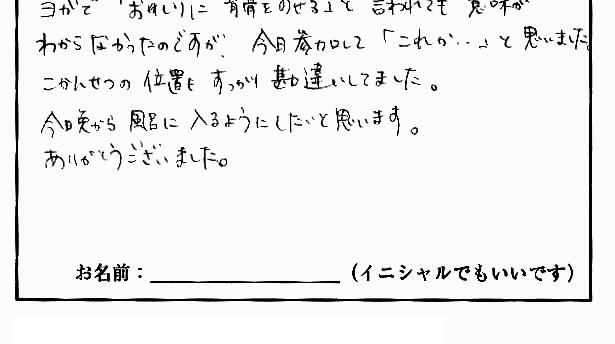 ヨガで「おしりに背骨をのせる」と言われても意味が
わからなかったのですが、今日参加して「これか…」と思いました。
こかんせつの位置もすっかり勘違いしてました。
今日晩から風呂に入るようにしたいと思います。
ありがとうございました。
お名前：（イニシャルでもいいです）